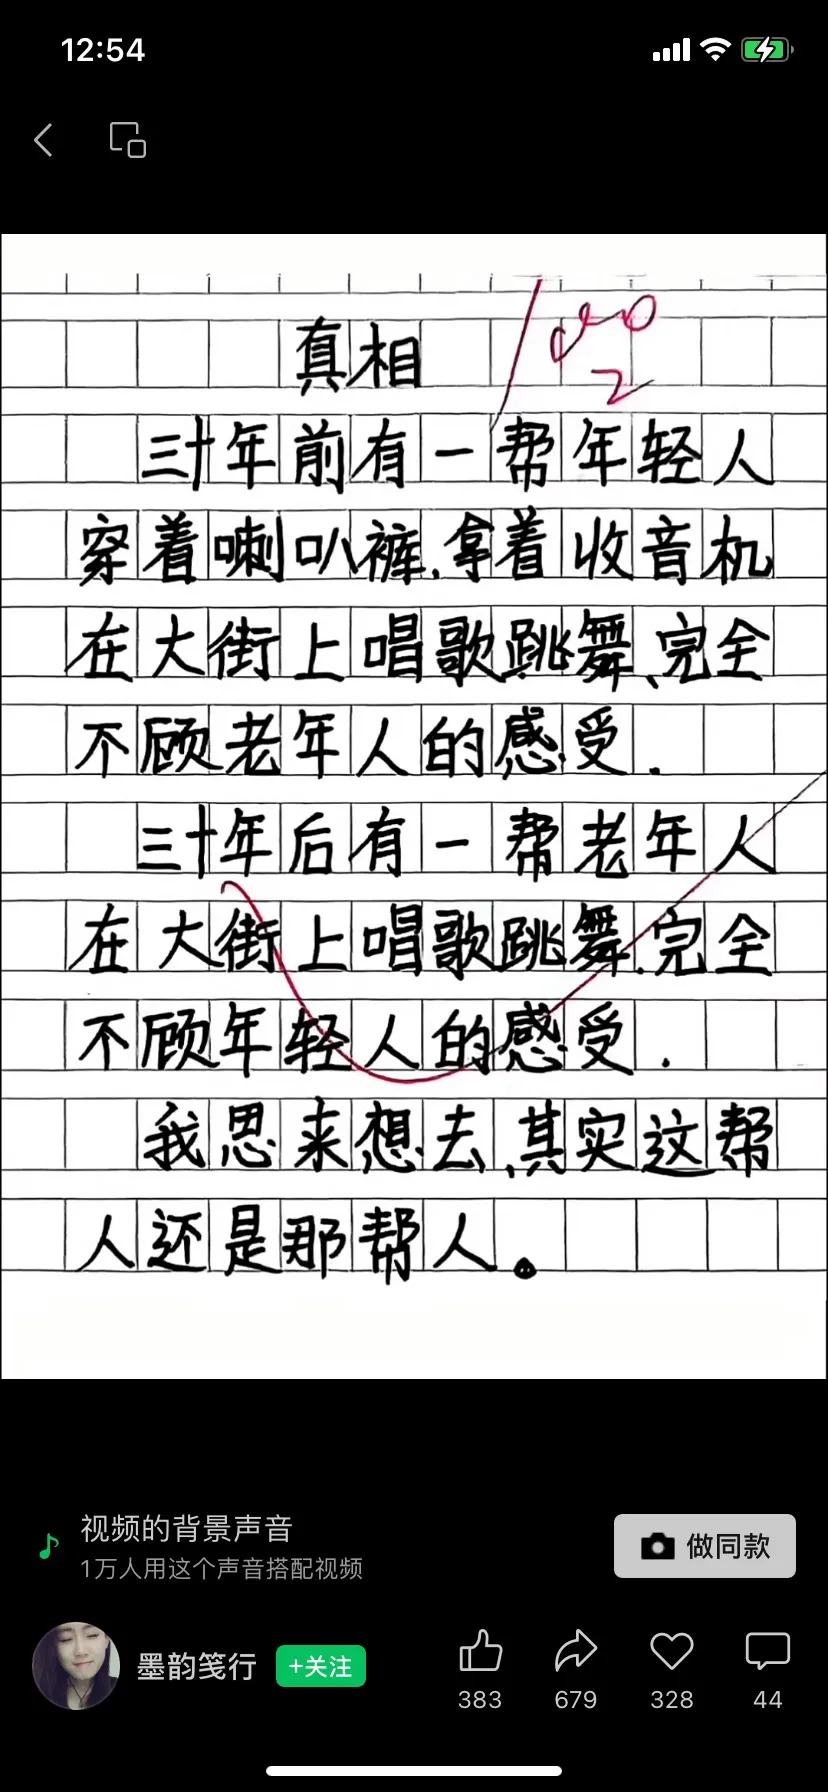 12:54
真相
三十年前有一帮年轻人
穿着喇叭裤.拿着收音机
在大街上唱歌跳舞、完全
不顾老年人的感受.
三十年后有一帮老年人
在大街上唱歌跳舞.完全
不顾年轻人的感受.
我思来想去、其实这帮
人还是那帮人。
视频的背景声音
1万人用这个声音搭配视频
做同款
墨韵笺行
+关注
383
679
328
44